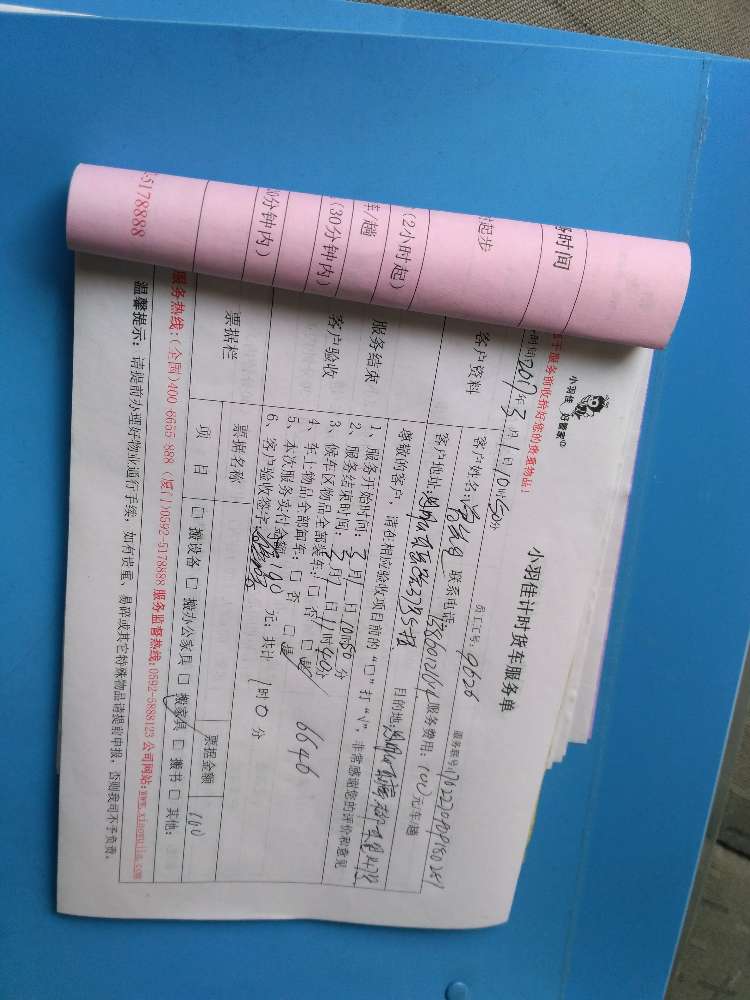 小羽佳 好管家
小羽佳计时货车服务单
于服务前收拾好您的贵重物品！
员工工号：9626
服务单号：
时间：2017年3月1日10时50分
客户资料
客户姓名：
联系电话：
服务费用：100元车/趟
客户地址：
目的地：
尊敬的客户，请在相应验收项目前的“□”打“√”，非常感谢您的评价和意见
服务结束
客户验收
1、服务开始时间：3月1日10时50分
2、服务结束时间：3月1日11时40分
3、保车区物品全部装车：□否 □是
4、车上物品全部卸车：□否 □是
5、本次服务实付金额：100元；共计1时0分
6、客户验收签字：
6646
票据栏
票据名称
票据金额
160
项目
□搬设备 □搬办公家具 □搬家具 □搬书 □其他：
服务热线：(全国)400-6655-888 (厦门)0592-5178888 服务监督热线：0592-5888123 公司网站：www.xiaoyujia.com
温馨提示：请提前办理好物业通行手续，如有贵重、易碎或其它特殊物品请提前申报，否则我司不予负责。
务时间
时起步
(2小时起)
车/趟
(30分钟内)
30分钟内)
-5178888